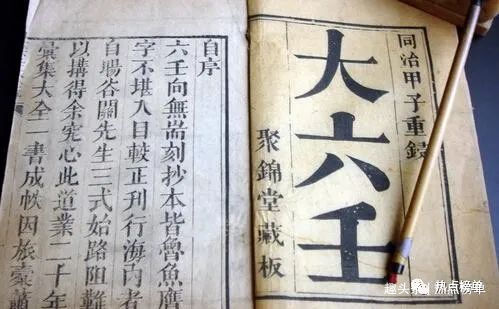 同治甲子重鐫
大六壬
聚錦堂藏板
自序
六壬向無耑刻抄本皆魯魚
字不堪入目較正刊行海內者
自谷關先生三式始路阻難
以搆得余究心此道業二十年
彙集大全一書成帙因旅橐蕭
热点榜单